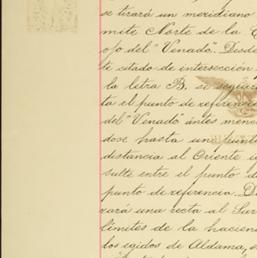 se tirará un meridiano
mite Norte de la
ojo del "Venado." Desde
te citado de intersección
la letra B. se seguirá
ta el punto de referencia
del "Venado" ántes menc
dose hasta un punto
distancia al Oriente
sulte entre el punto d
punto de referencia. D
cará una recta al Sur
límites de la hacien
los egidos de Aldama, e